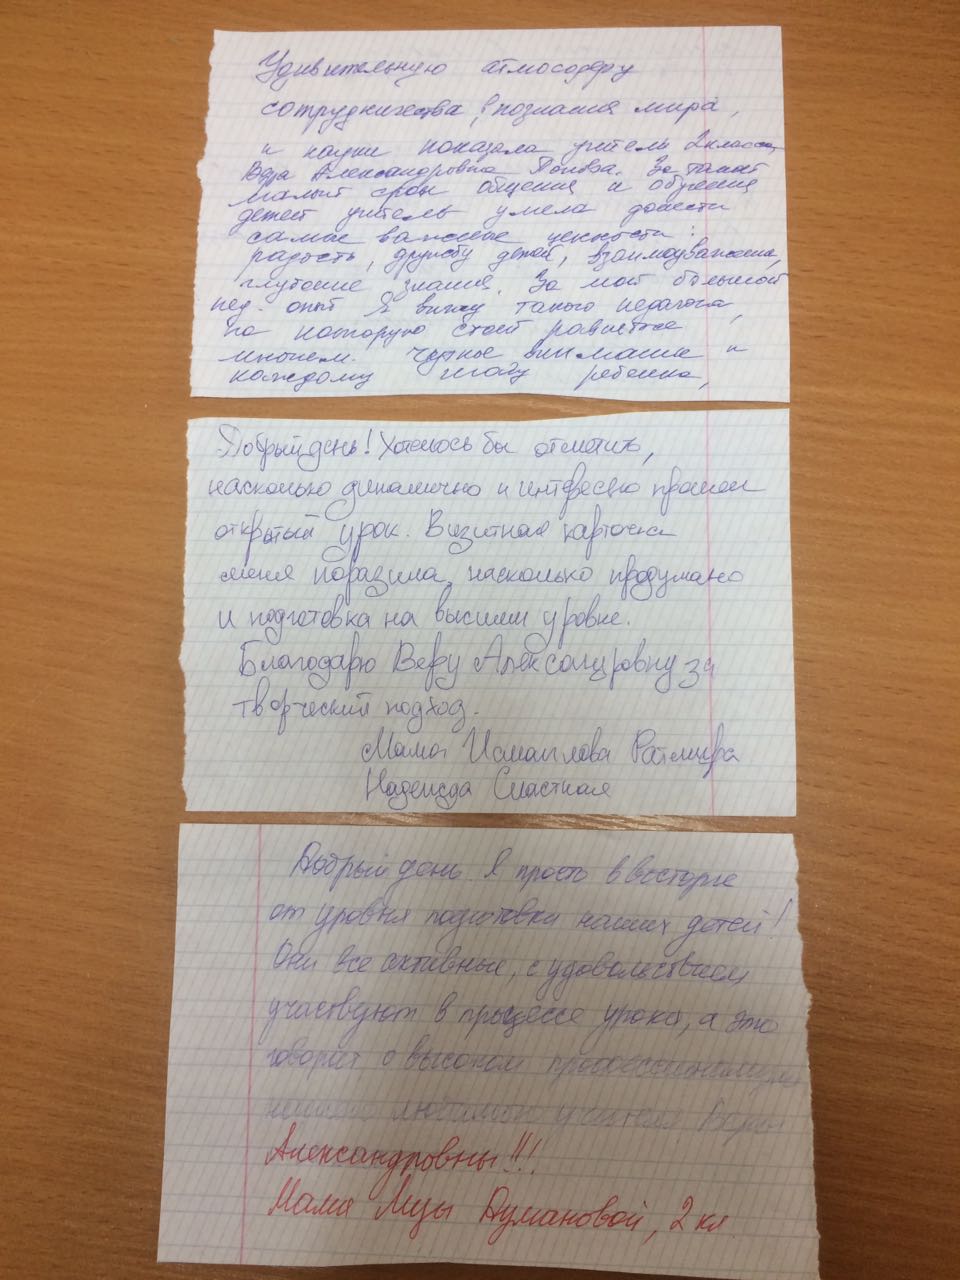 Удивительную атмосферу
сотрудничества, познания мира,
и науки показала учитель 2 класса,
Вера Александровна Попова. За такой
малый срок общения и обучения
детей учитель умела донести
самые важные ценности:
радость, дружбу детей, взаимоуважение,
глубокие знания. За мой большой
пед. опыт я вижу такого педагога,
на которую стоит равняться
многим. Чуткое внимание к
каждому шагу ребенка,
Добрый день! Хотелось бы отметить,
насколько динамично и интересно прошел
открытый урок. Визитная карточка
меня поразила, насколько продумано
и подготовка на высшем уровне.
Благодарю Веру Александровну за
творческий подход.
Мама Исмаилова Ратмира
Надежда Счастная
Добрый день. Я просто в восторге
от уровня подготовки наших детей!
Они все активные, с удовольствием
участвуют в процессе урока, а это
говорит о высоком профессионализме
нашего любимого учителя Веры
Александровны!!!
Мама Музы Аумановой, 2 кл